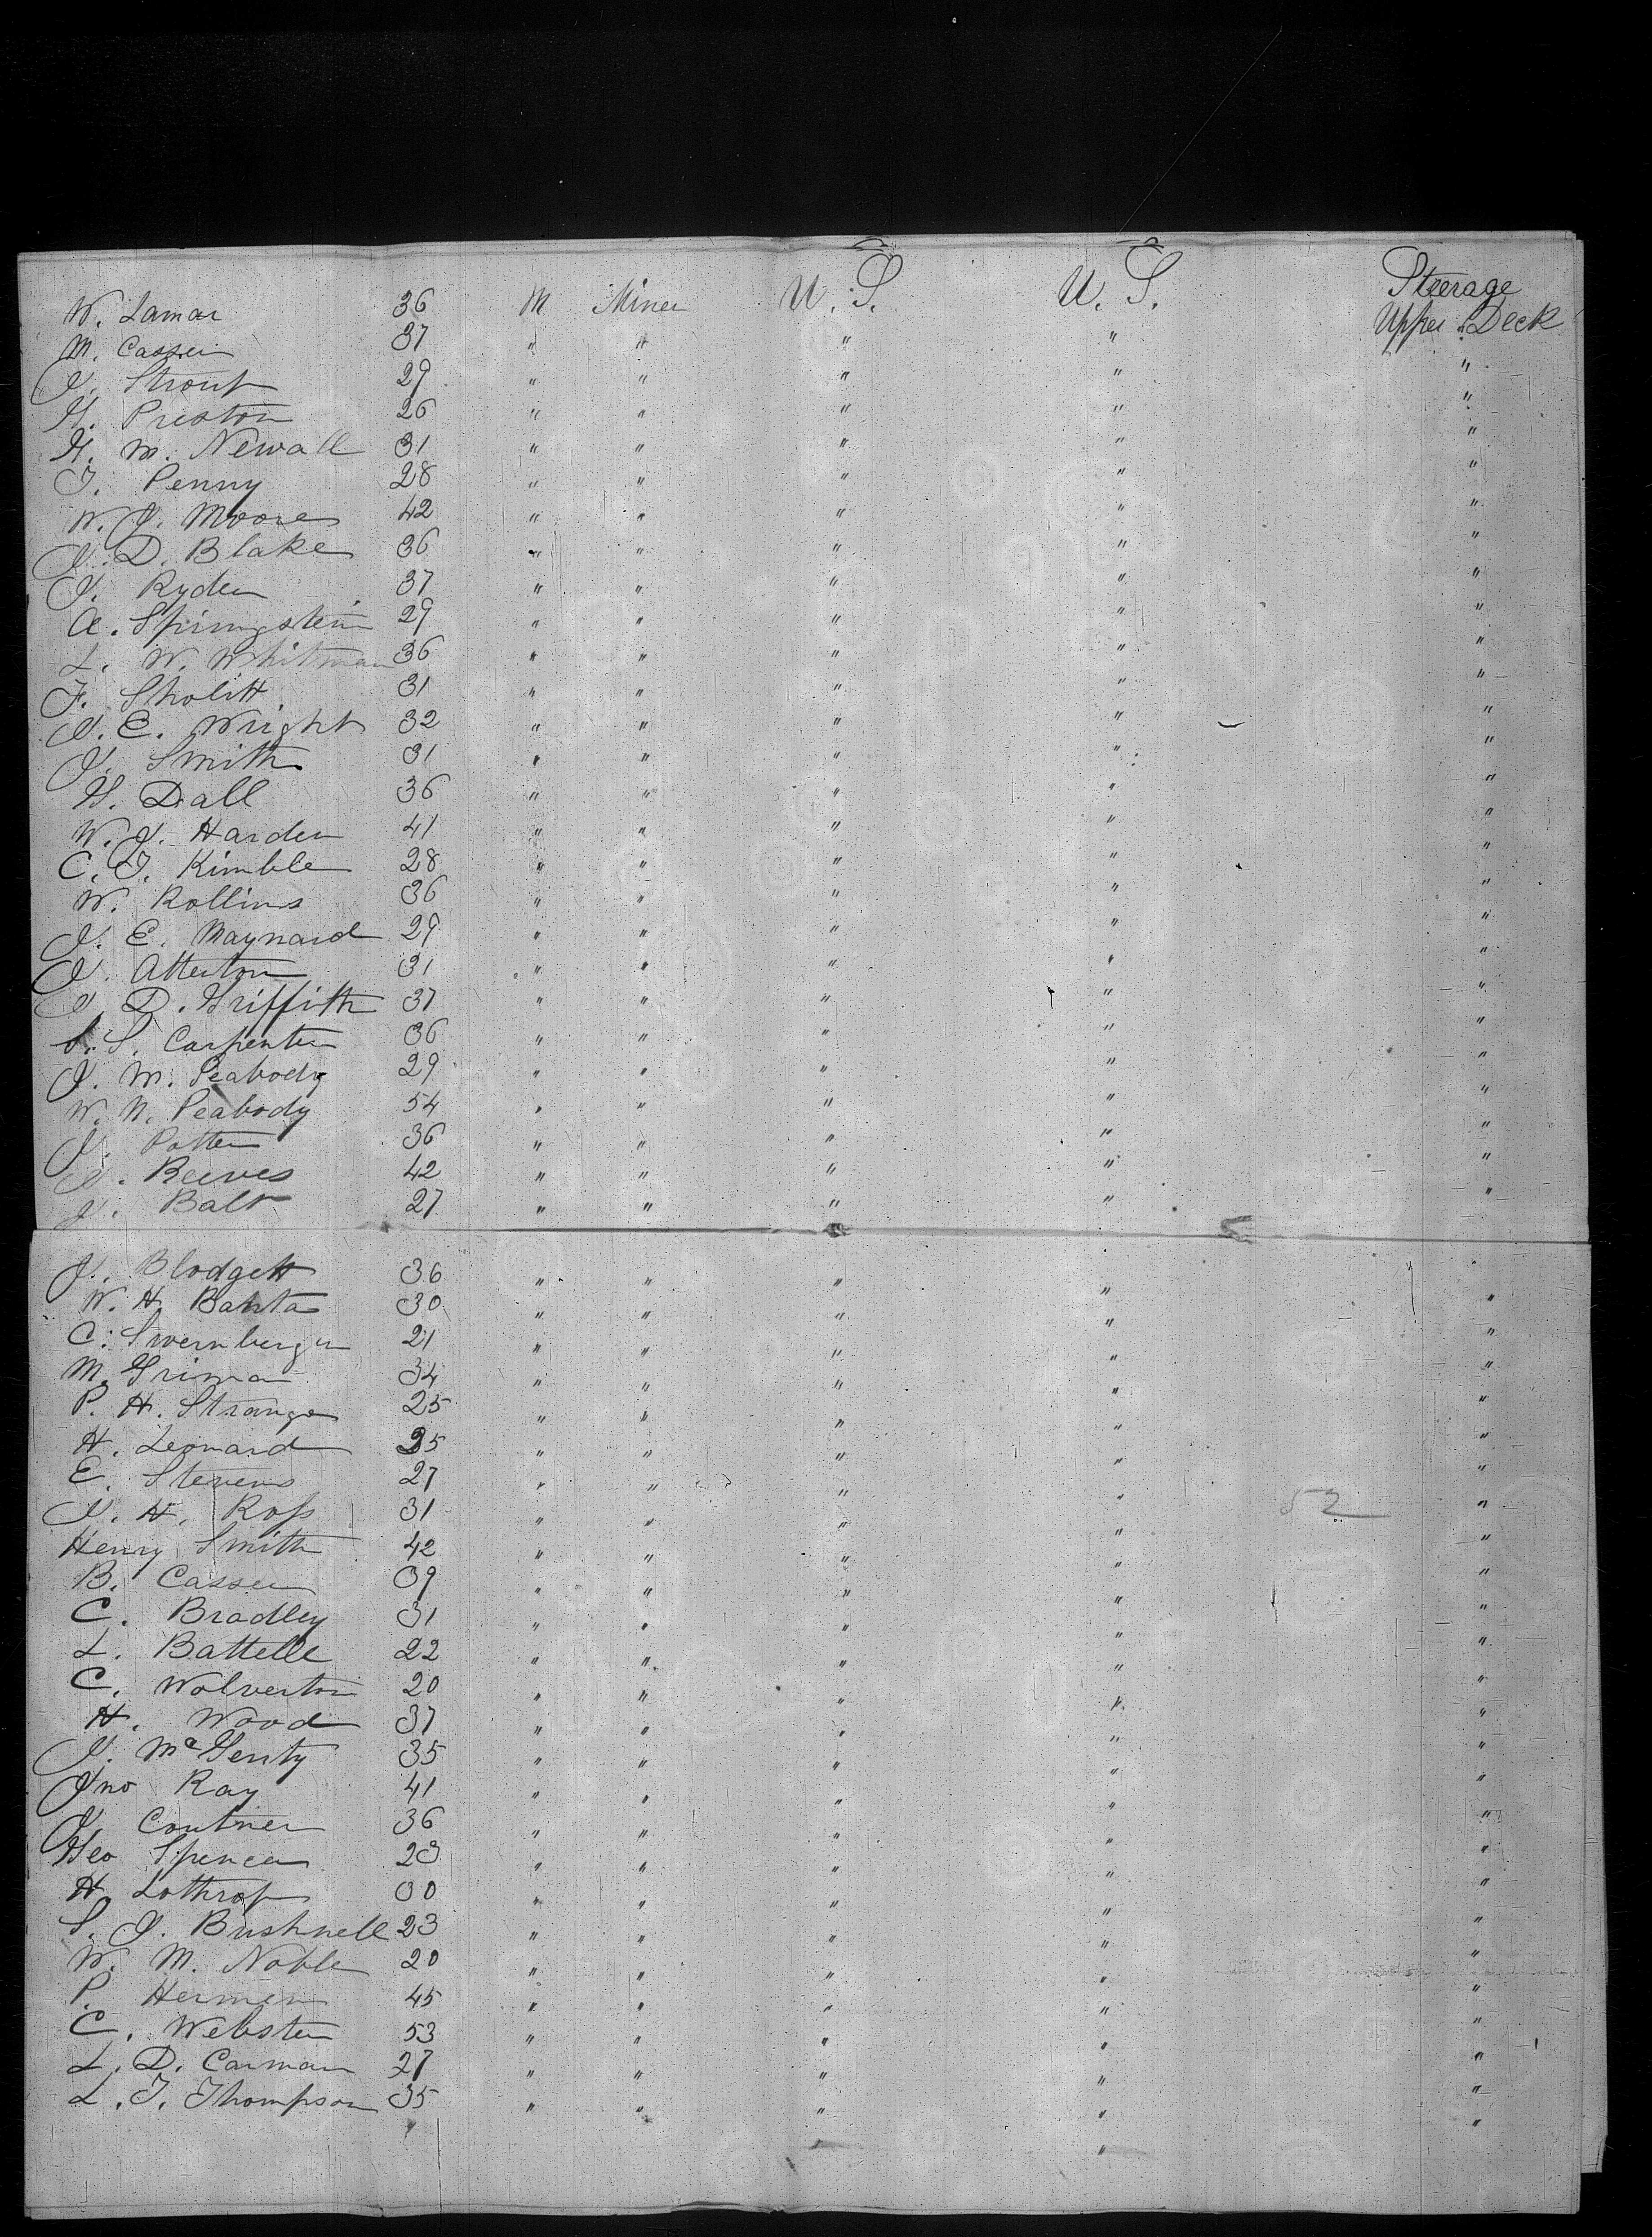 W. Lamar 36 M Miner U. S. U. S. Steerage Upper Deck
M. Casser 37 " " " " "
J. Strout 29 " " " " "
G. Preston 26 " " " " "
G. M. Newall 31 " " " " "
T. Penny 28 " " " " "
W. J. Moore 42 " " " " "
J. D. Blake 36 " " " " "
J. Ryder 37 " " " " "
A. Springstein 29 " " " " "
L. W. Whitman 36 " " " " "
F. Sholitt 31 " " " " "
J. E. Wright 32 " " " " "
J. Smith 31 " " " " "
G. Dall 36 " " " " "
W. J. Harden 41 " " " " "
C. T. Kimble 28 " " " " "
W. Rollins 36 " " " " "
J. E. Maynard 29 " " " " "
J. Atterton 31 " " " " "
J D. Griffith 37 " " " " "
S. Carpenter 36 " " " " "
J. M. Peabody 29 " " " " "
W. N. Peabody 54 " " " " "
J. Potter 36 " " " " "
J. Reeves 42 " " " " "
J. Balt 27 " " " " "
J. Blodgett 36 " " " " "
W. H. Banta 30 " " " " "
C. Swernberger 21 " " " " "
M. Griman 34 " " " " "
P. H. Strange 25 " " " " "
H. Leonard 35 " " " " "
E. Stevens 27 " " " " "
J. H. Ross 31 " " " " 52 "
Henry Smith 42 " " " " "
B. Casser 39 " " " " "
C. Bradley 31 " " " " "
L. Battelle 22 " " " " "
C. Wolverton 20 " " " " "
H. Wood 37 " " " " "
J. McGenty 35 " " " " "
Jno Ray 41 " " " " "
J. Coutner 36 " " " " "
Geo Spencer 23 " " " " "
H. Lothrop 30 " " " " "
S. J. Bushnell 23 " " " " "
W. M. Noble 20 " " " " "
P. Hermen 45 " " " " "
C. Webster 53 " " " " "
L. D. Carman 27 " " " " "
L. T. Thompson 35 " " " " "